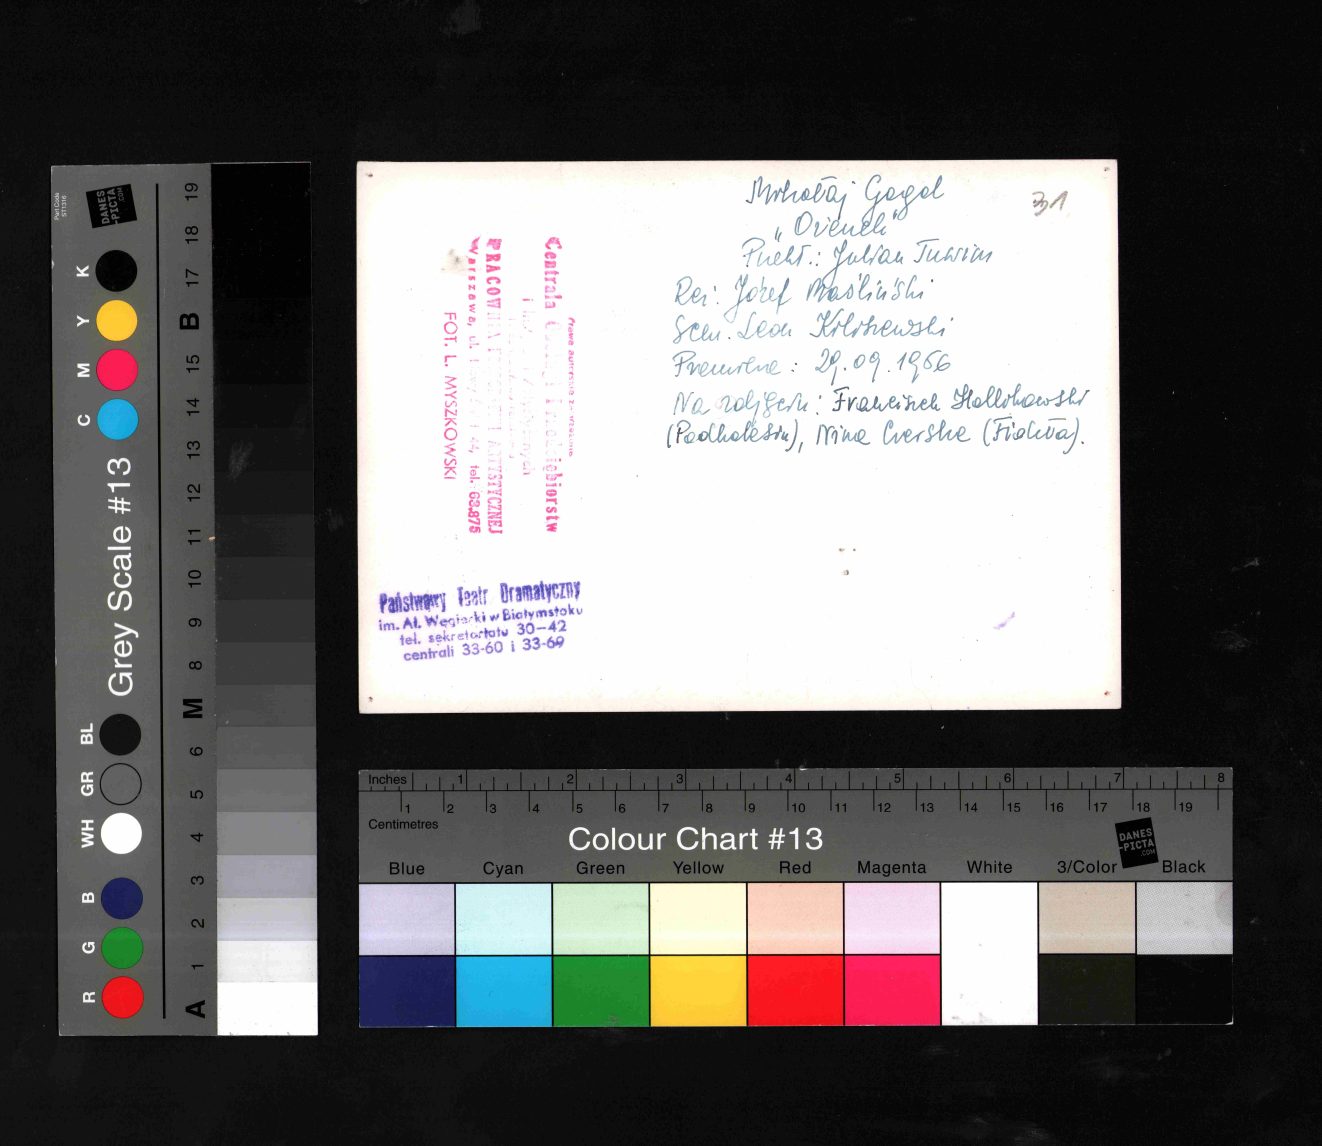 Mikołaj Gogol
„Ożenek"
Przekł.: Julian Tuwim
Reż: Józef Maśliński
Scen. Leon Kołoszewski
Premiera: 29.09.1956
Na zdjęciu: Franciszek
(Podkolesin), Nina Czerska (Fiokła).
31
Prawa autorskie
Centrala
PRACOWNIA ARTYSTYCZNEJ
Warszawa, ul. 44, tel. 68.875
FOT. L. MYSZKOWSKI
Państwowy Teatr Dramatyczny
im. Al. Węgierki w Białymstoku
tel. sekretariatu 30-42
centrali 33-60 i 33-69
Part Code
ST1316
DANES
-PICTA
.COM
Grey Scale #13
K
Y
M
C
BL
GR
WH
B
G
R
19
18
17
B
15
14
13
12
11
10
9
8
M
6
5
4
3
2
1
A
Inches 1 2 3 4 5 6 7 8
1 2 3 4 5 6 7 8 9 10 11 12 13 14 15 16 17 18 19
Centimetres
Colour Chart #13
DANES
-PICTA
.COM
Blue Cyan Green Yellow Red Magenta White 3/Color Black